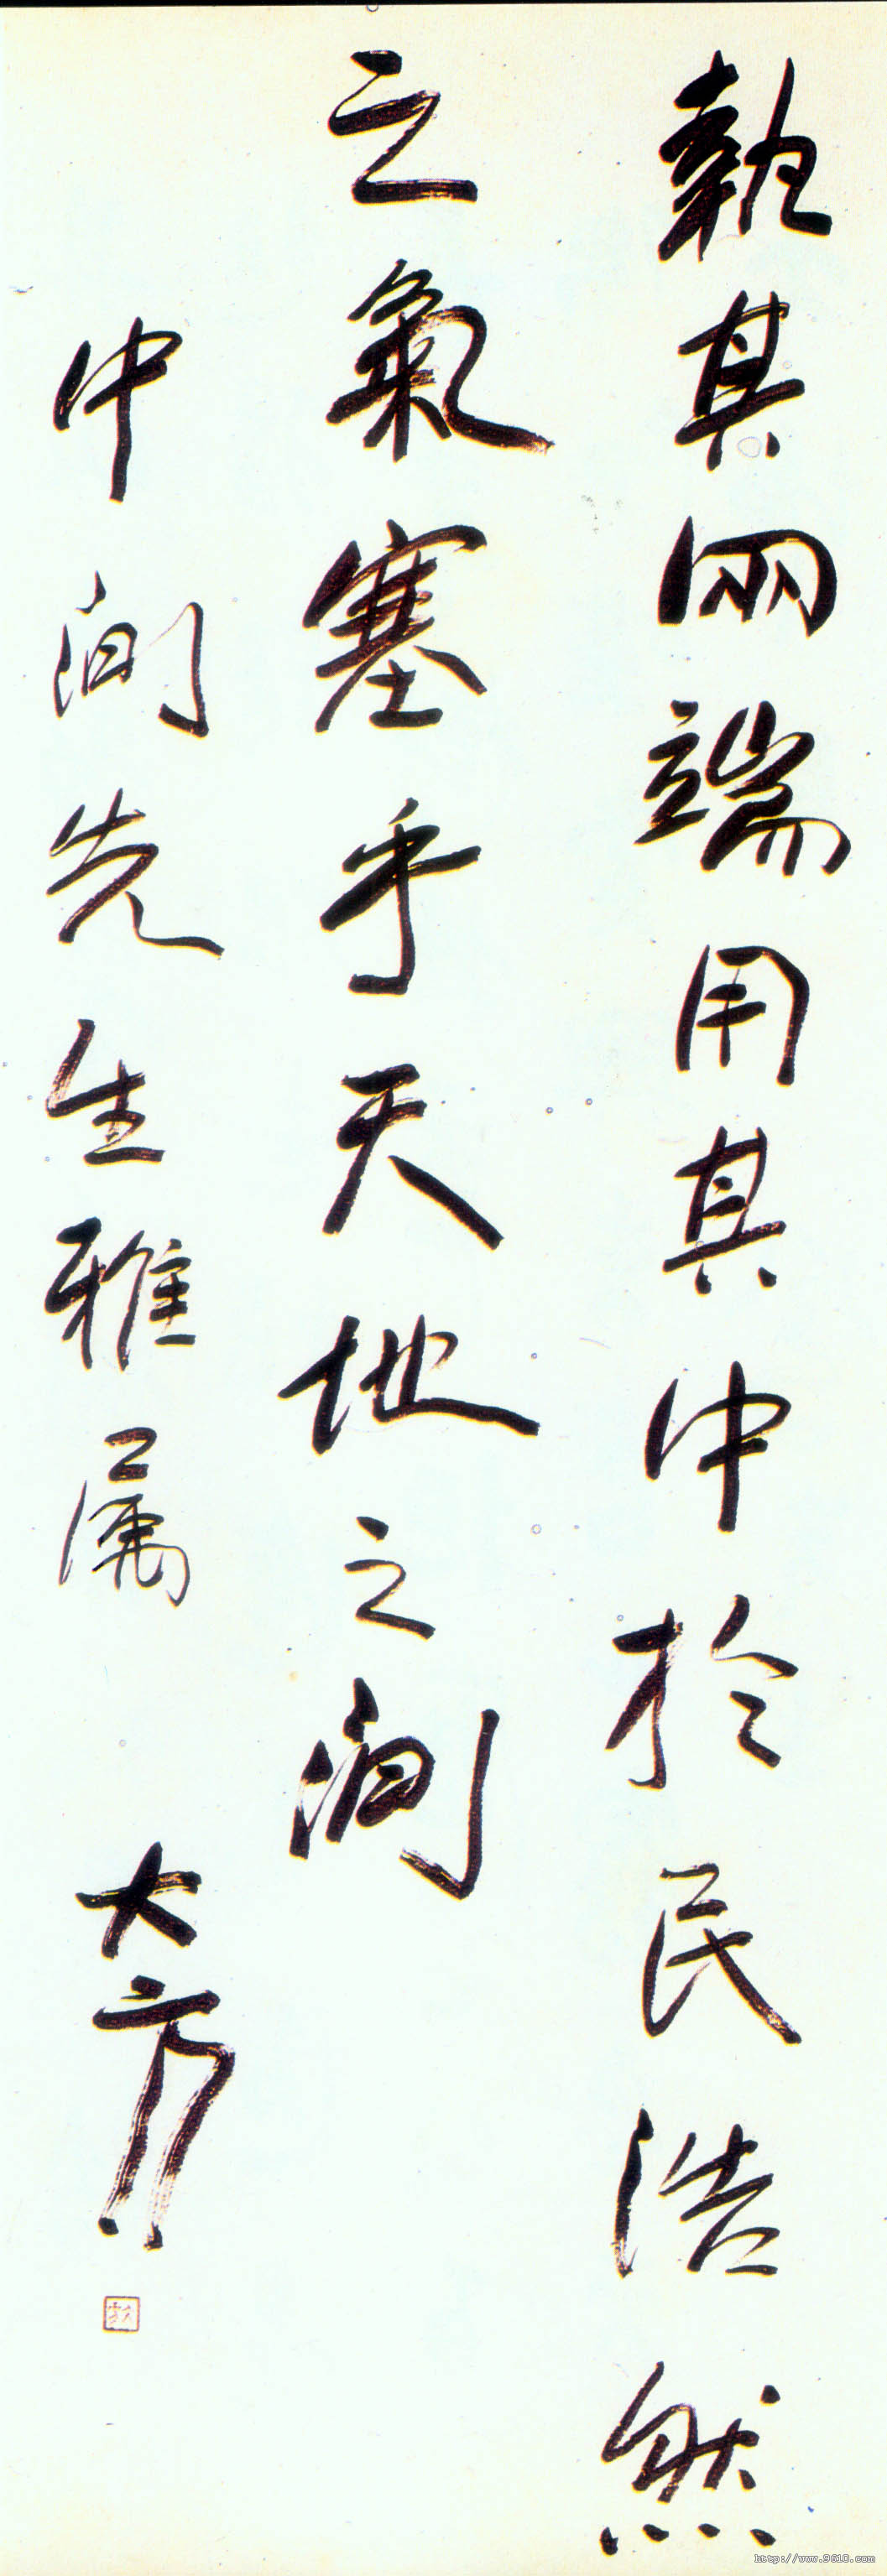 執其兩端用其中於民浩然
之氣塞乎天地之間
中間先生雅属
大方
http://www.9610.com